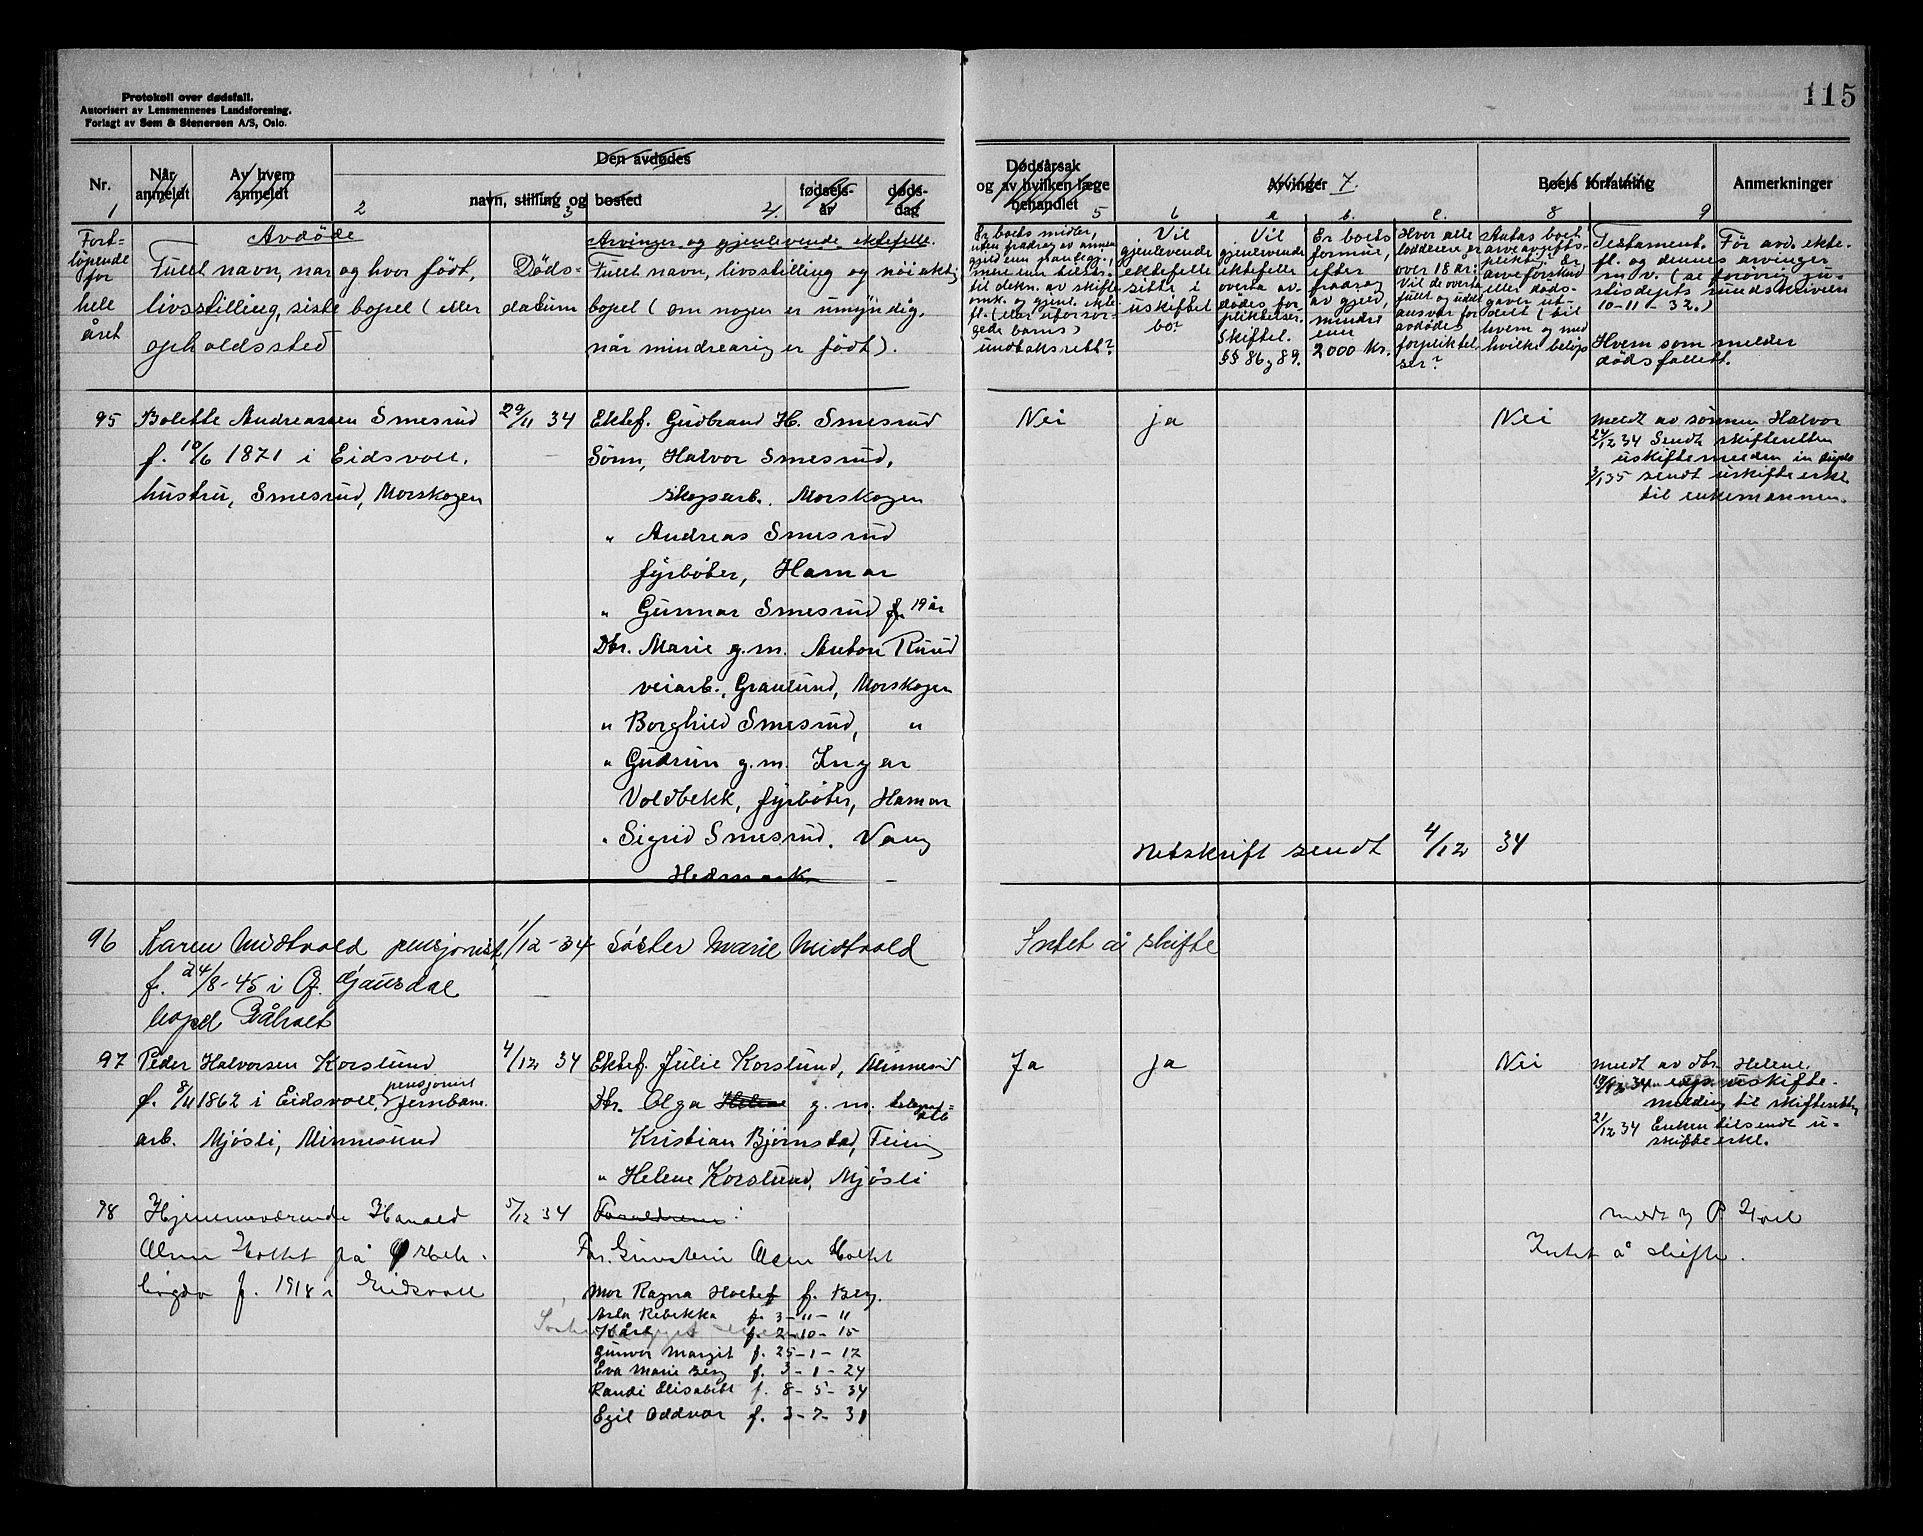 115
Protokoll over dødsfall.
Autorisert av Lensmennenes Landsforening.
Forlagt av Sem & Stenersen A/S, Oslo.
Nr. Når anmeldt Av hvem anmeldt Den avdødes
navn, stilling og bosted fødsels-år døds-dag
Dødsårsak og av hvilken læge behandlet Arvinger 7. Boets forfatning Anmerkninger
1 2 3 4. 5 6 a b. c. 8 9
Fort-
løpende
for
hele
året
Avdøde
Fullt navn, når og hvor født,
livsstilling, siste bopel (eller
opholdssted
Døds-
datum
Arvinger og gjenlevende ektefelle.
Fullt navn, livsstilling og nøiaktig
bopel (om nogen er umyndig,
når mindreårig er født).
Er boets midler,
uten fradrag av annen
gjeld enn
mere enn
til dekn. av skifte
omk. og gjenl. ekte-
f. (eller uforsør-
gede barns)
undtaksrett?
Vil
gjenlevende
ektefelle
sitte i
uskiftet
bo
Vil
gjenlevende
ektefelle
overta av-
dødes for-
pliktelser.
Skiftel.
§§ 86 og 89.
Er boets
formue,
efter
fradrag
av gjeld,
mindre
enn
2000 kr.
Hvor alle
loddeiere er
over 18 år:
Vil de overta
fullt og udelt
ansvar for
avdødes
forpliktel-
ser?
Antas boet
arveavgifts-
pliktig? Er
arveforskudd
eller døds-
gaver ut-
delt (til
hvem og med
hvilke beløp
Testament. Før avd. ekte-
fl. og dennes arvinger
m v. (se forøvrig ju-
stisdepts rundskriven
10-11-32.)
Hvem som melder
dødsfallet.
95 Bolette Andreassen Smesrud 29/11 34 Ektef. Gudbrand H. Smesrud Nei ja Nei
f. 10/6 1871 i Eidsvoll,
hustru, Smesrud, Morskogen
Sønn, Halvor Smesrud,
skogsarb. Morskogen
" Andreas Smesrud
fyrbøter, Hamar
" Gunnar Smesrud f. 19 år
Dtr. Marie g.m. Anton Ruud
veiarb., Granlund, Morskogen
" Borghild Smesrud, "
" Gudrun g.m. Ingar
Voldbekk, fyrbøter, Hamar
" Sigrid Smesrud. Vang
Hedmark.
meldt av sønnen Halvor
24/12 34 Sendt skifteretten
uskiftemelden in dupl.
3/1 35 sendt uskifteerkl.
til enkemannen.
Hetskrift sendt 4/12 34
96 Karen Midtvold pensjonist, 1/12 - 34 Søster Marie Midtvold Intet å skifte
f. 24/8-45 i Ø. Gausdal
bopel Råholt
97 Peder Halvorsen Korslund 4/12 34 Ektef. Julie Korslund, Minnesund Ja ja Nei
f. 8/11 1862 i Eidsvoll, pensjonist jernbane-
arb. Mjøsli, Minnesund
Dtr. Olga Helene g.m.
Kristian Bjørnstad, Feiring
" Helene Korslund, Mjøsli
meldt av dtr. Helene,
uskifte-
melding til skifteretten
21/12 34 Enken tilsendt u-
skifteerkl.
98 Hjemmeværende Harald 5/12 34 Foreldrene:
Olsen Holtet på
f. 1918 i Eidsvoll
Far. Olsen Holtet
Mor Ragna Holtet f. Berg.
Asta Rebekka f. 3-11-11
Kåre f. 2-10-15
Gunvor Margit f. 25-1-17
Eva Marie Berg f. 3-1-24
Randi Elisabet f. 8-5-34
Egil Oddvar f. 3-7-31
meldt
Intet å skifte.